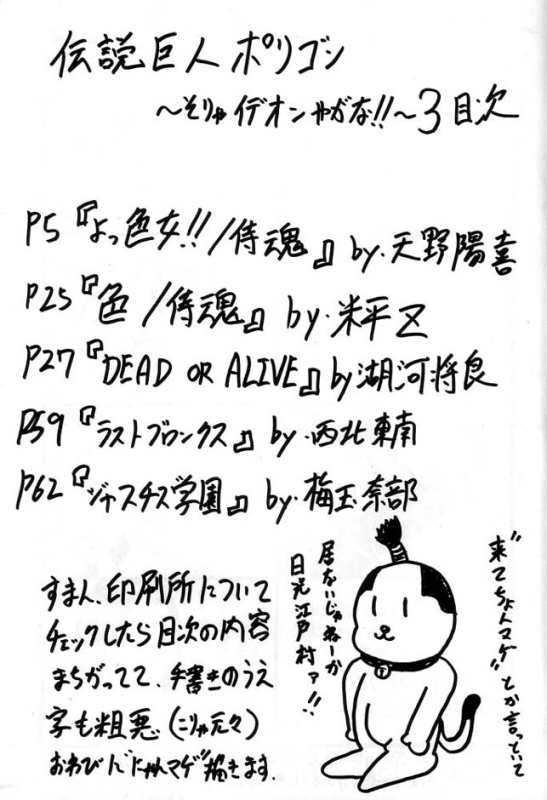 伝説巨人ポリゴン
〜そりゃイデオンやがな!!〜3 目次
P5『よっ色女!!/侍魂』by.天野陽喜
P25『色/侍魂』by.米平Z
P27『DEAD OR ALIVE』by湖河将良
P59『ラストブロンクス』by.西北東南
P62『ジャスチス学園』by.梅玉奈部
すまん、印刷所について
チェックしたら目次の内容
まちがってて、手書きのうえ
字も粗悪(こりゃ元々)
おわびに"にゃんマゲ"描きます.
"来てちょんマゲ"とか言っていて
居ないじゃねーか
日光江戸村ァ!!